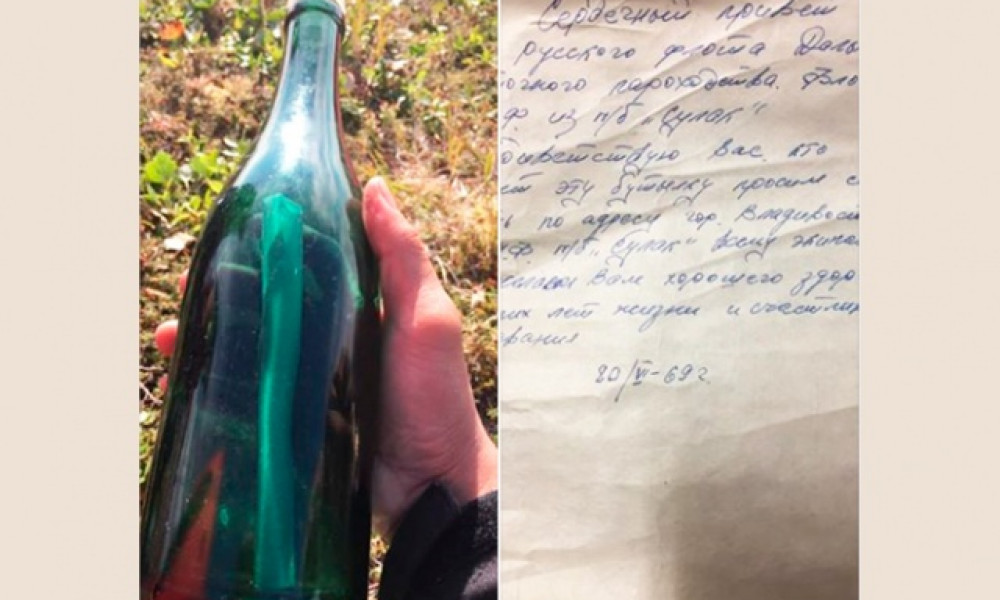 Сердечный привет
русского флота Даль
очного пароходства. Вло
ф. из п/б „Сулак"
риветствую Вас, кто
ет эту бутылку просим с
ь по адресу гор. Владивост
ф. п/б „Сулак" всему экипа
Вам хорошего здор
их лет жизни и счастлив
вания
20/VI-69 г.